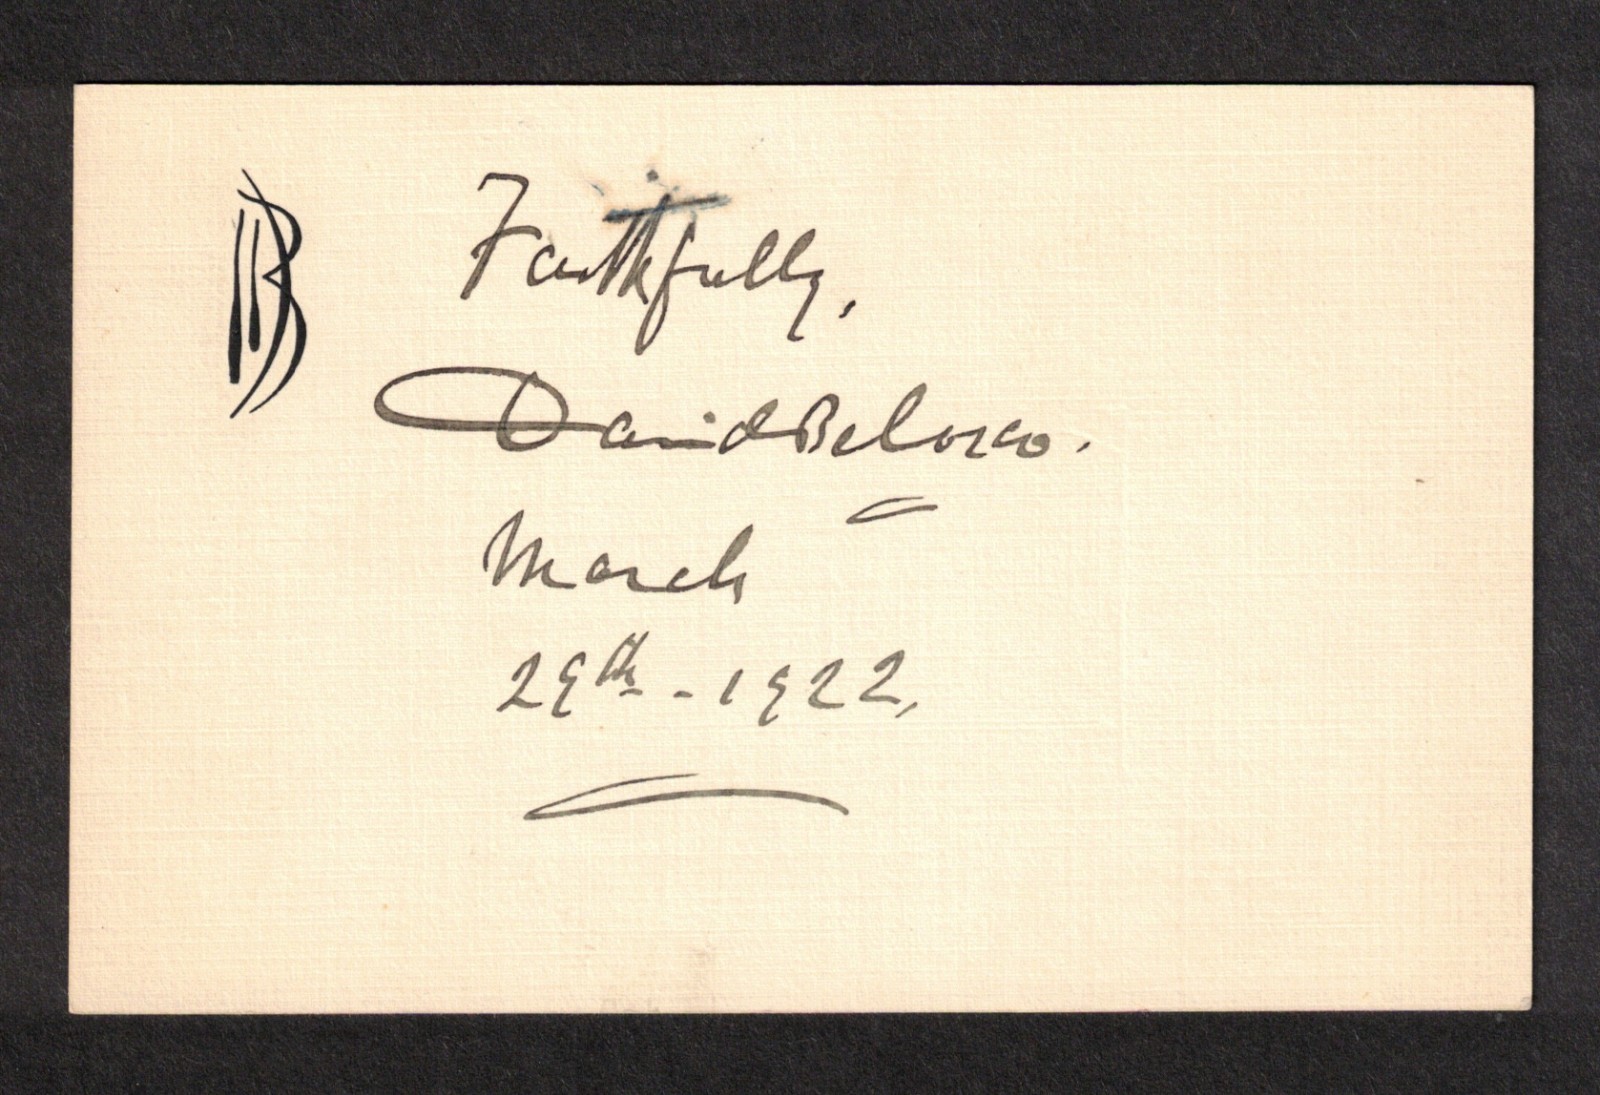 B
Faithfully,
David Belasco.
March
29th - 1922,